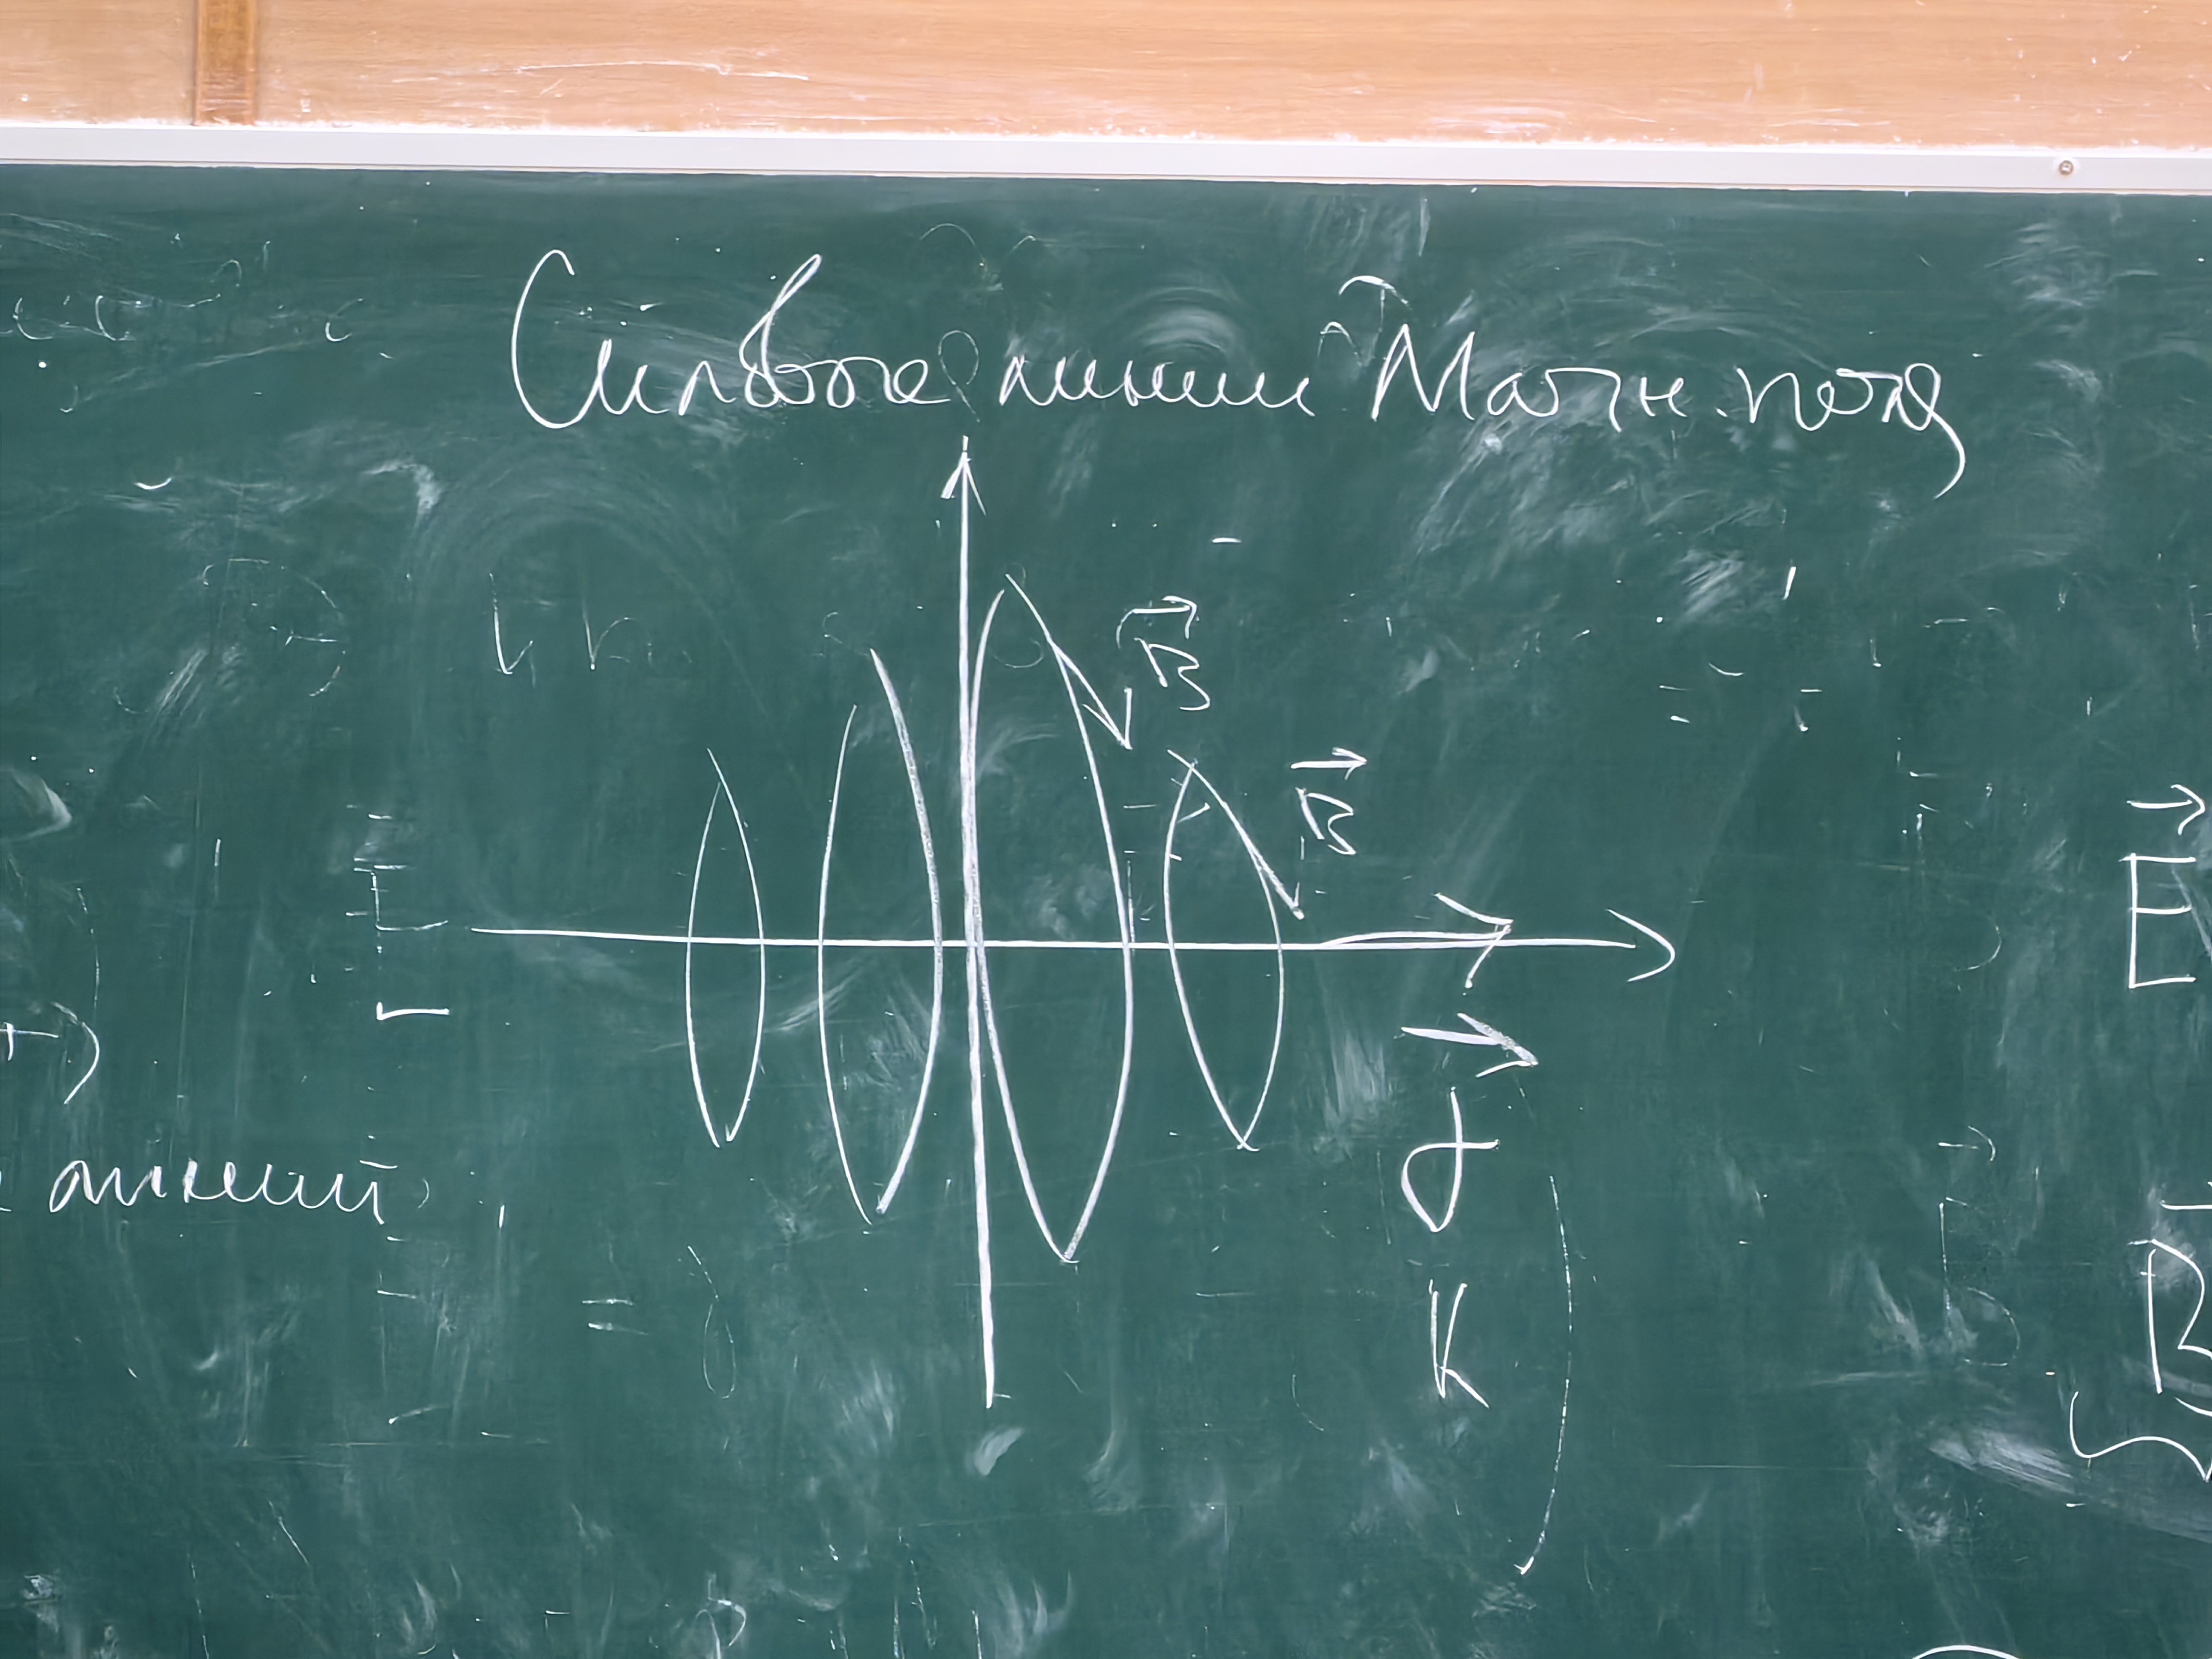 Силовые линии Магн. поля
B
B
E
линий
J
K
B